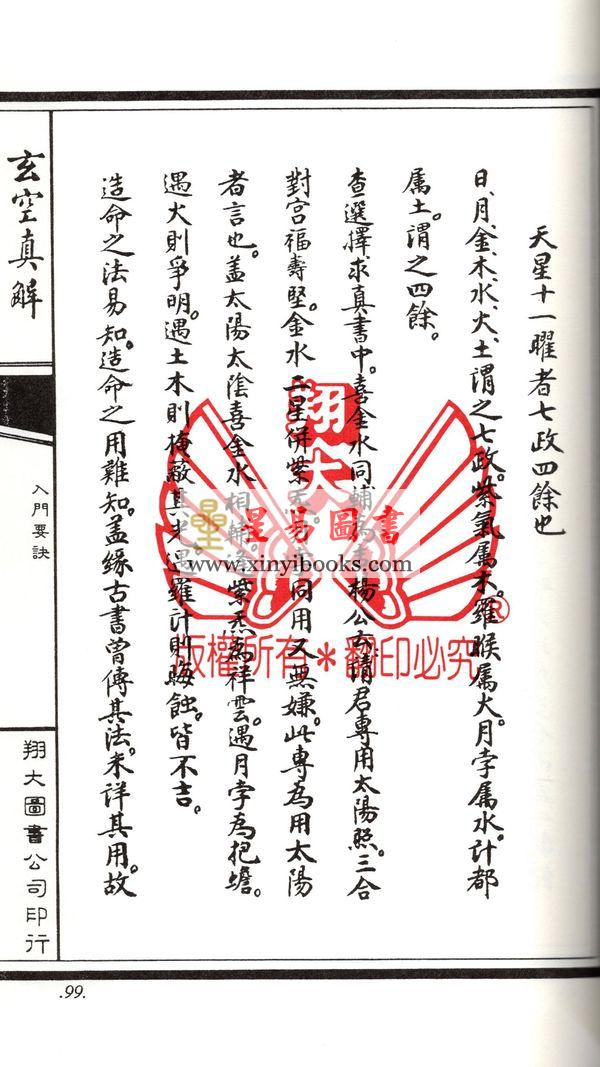 天星十一曜者七政四餘也
日、月、金、木、水、火、土謂之七政。紫氣属木。羅睺属火。月孛属水。計都
属土。謂之四餘。
查選擇求真書中。喜金水同輔為貴。楊公云請君專用太陽照。三合
對宮福壽堅。金水二星併紫炁。月孛同用又無嫌。此專為用太陽
者言也。盖太陽太陰喜金水相輔。遇紫炁為祥雲。遇月孛為抱蟾。
遇火則爭明。遇土木則掩蔽其光。遇羅計則晦蝕。皆不吉。
造命之法易知。造命之用難知。盖緣古書曾傳其法。未详其用。故
玄空真解
入門要訣
翔大圖書公司印行
.99.
翔大
星
星易圖書
www.xinyibooks.com
®
版權所有＊翻印必究